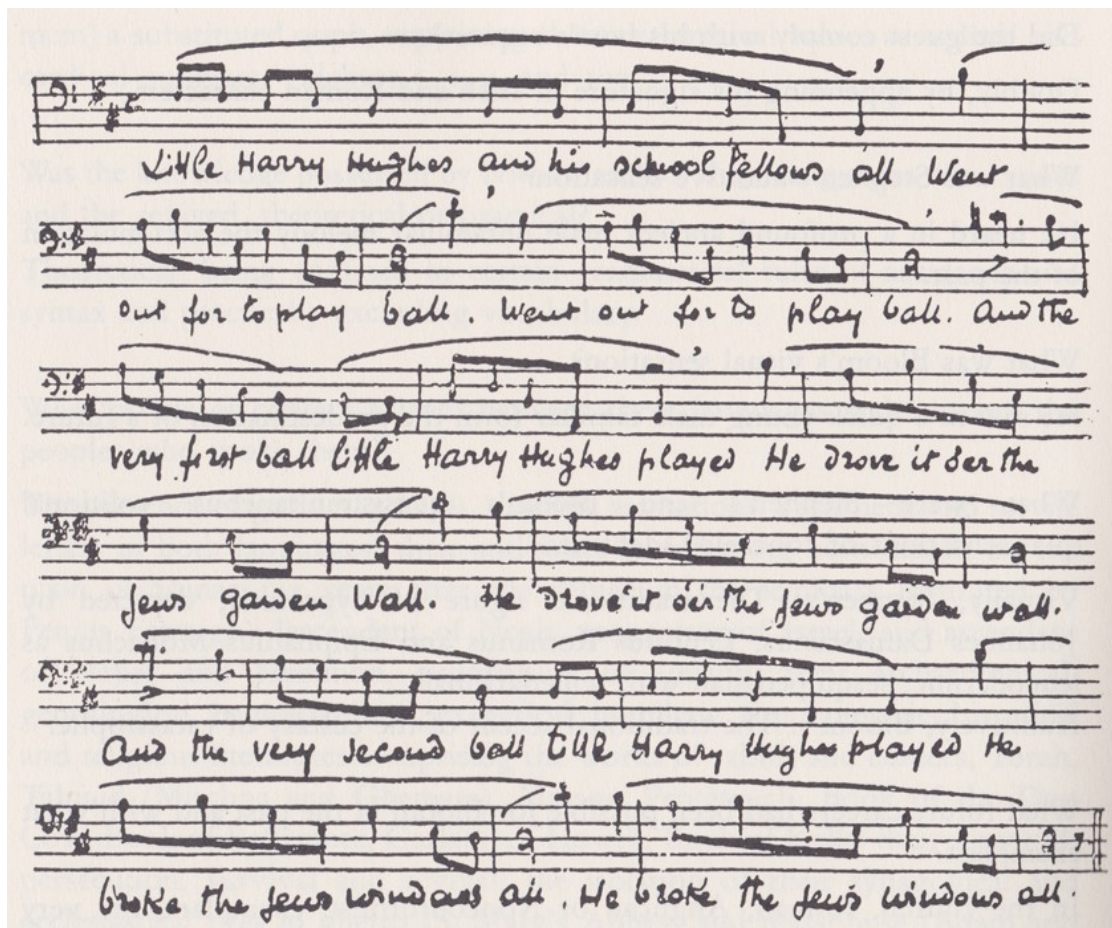 Little Harry Hughes and his school fellows all Went
out for to play ball. Went out for to play ball. And the
very first ball little Harry Hughes played He drove it o'er the
jews garden wall. He drove it o'er the jews garden wall.
And the very second ball little Harry Hughes played He
broke the jews windows all. He broke the jews windows all.